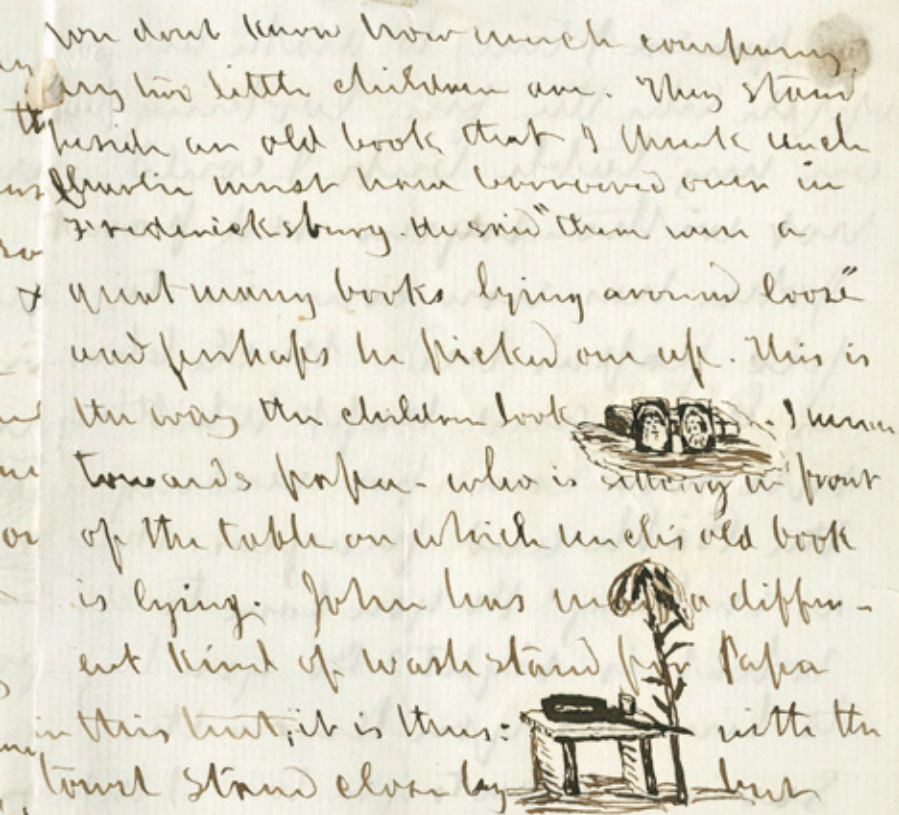 You dont know how much company
my two little children are. They stand
beside an old book that I think uncle
Charlie must have borrowed over in
Fredericksburg. He said "there were a
great many books lying around loose"
and perhaps he picked one up. This is
the way the children look I mean
towards papa - who is sitting in front
of the table on which uncle's old book
is lying. John has made a differ-
ent kind of wash stand for Papa
in this tent; it is thus: with the
towel stand close by but